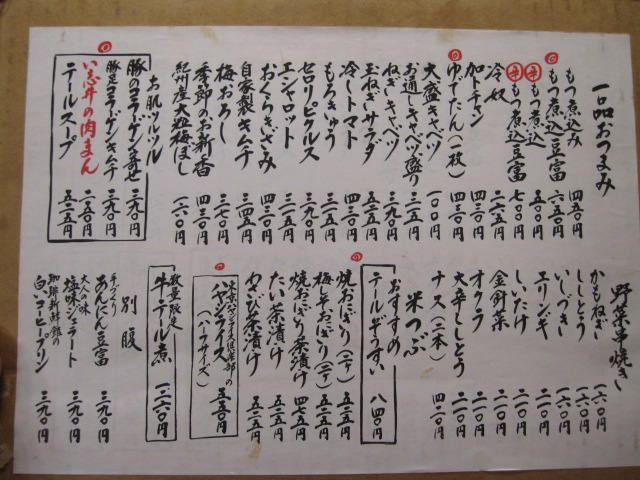 一品おつまみ
もつ煮込み 四五〇円
もつ煮込豆富 六五〇円
辛 もつ煮込 五〇〇円
辛 もつ煮込豆富 七〇〇円
冷奴 二六五円
加トチャン 四三〇円
ゆでたん(一枚) 四三〇円
大盛キャベツ 一〇〇円
お通しキャベツ盛り 三一五円
ねぎキャベツ 三九〇円
玉ねぎサラダ 五二五円
冷しトマト 四三〇円
もろきゅう 三一五円
セロリピクルス 三九〇円
エシャロット 三一五円
おくらきざみ 三一五円
自家製キムチ 三四五円
梅おろし 三七〇円
季節のお新香 四三〇円
紀州産大盛梅ぼし 一六〇円
お肌ツルツル
豚のコラーゲン玉寄せ 三九〇円
豚足コラーゲンキムチ 三九〇円
い志井の肉まん 二五〇円
テールスープ 五二五円
野菜串焼き
かもねぎ 一六〇円
ししとう 一六〇円
いしづき 一六〇円
エリンギ 二一〇円
しいたけ 二一〇円
金針菜 二一〇円
オクラ 二一〇円
大辛ししとう 二一〇円
ナス(二本) 四二〇円
米つぶ
おすすめの
テールぞうすい 八四〇円
焼おにぎり(二ケ) 五二五円
梅干おにぎり(二ケ) 五二五円
焼おにぎり茶漬け 四七五円
たい茶漬け 五二五円
わさび茶漬け 五二五円
東京ハヤシライス倶楽部の
ハヤシライス(ハーフサイズ) 五五〇円
数量限定
牛テール煮 一二六〇円
別腹
手づくり
あんにん豆富 三九〇円
大人の味
塩味ジェラート 三九〇円
珈琲新鮮館の
白いコーヒープリン 三九〇円